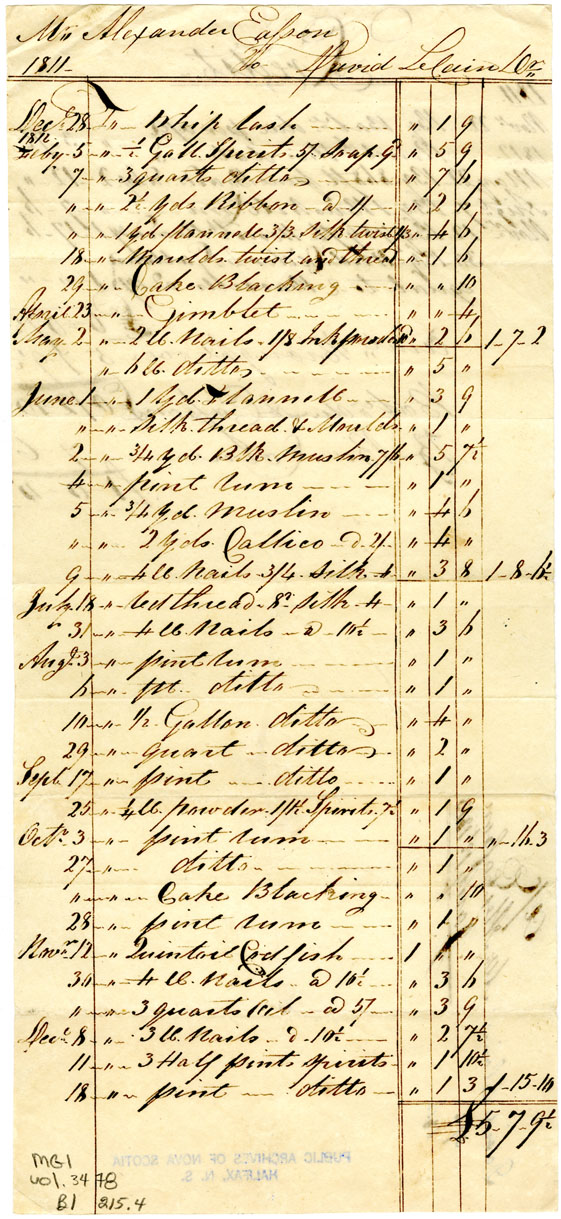 Mr Alexander Easson
1811 To David LeCain Dr
Decr 28 To Whip lash " 1 9
1812
Feby 5 " ½ Gall Spirits 5/ Snap 9d " 5 9
7 " 3 quarts ditto " 7 6
" " 2½ yds Ribbon a 1/ " 2 6
" " 1 yd flannell 3/3 Silk twist 1/3 " 4 6
18 " Moulds twist and thread " 1 6
29 " Cake Blacking " " 10
April 23 " Gimblet " " 4
May 2 " 2 lb Nails 1/8 Inkpowder " 2 6 1-7-2
" 6 lb ditto " 5 "
June 1 " 1 yd flannell " 3 9
" Silk thread & Moulds " 1 "
2 " ¾ yd Blk Muslin 7/6 " 5 7½
4 " pint rum " 1 "
5 " ¾ yd Muslin " 4 6
" " 2 yds Callico a 2/ " 4 "
9 " 4 lb Nails 3/4 Silk 4 " 3 8 1-8-6½
July 18 " thread 8d Silk 4 " 1 "
" 31 " 4 lb Nails a 10½ " 3 6
Augt 3 " pint rum " 1 "
6 " pt ditto " 1 "
10 " 1/2 Gallon ditto " 4 "
29 " quart ditto " 2 "
Sept 17 " pint ditto " 1 "
25 " ¼ lb powder Spirits 7½ " 1 9
Octr 3 " pint rum " 1 " "-16-3
27 " ditto " 1 "
" " Cake Blacking " " 10
28 " pint rum " 1 "
Novr 12 " Quintail Codfish 1 " "
30 " 4 lb Nails a 10½ " 3 6
" " 3 quarts a 5/ " 3 9
Decr 8 " 3 lb Nails a 10½ " 2 7½
11 " 3 Half pints spirits " 1 10½
18 " pint ditto " 1 3 1-15-10
£5-7-9½
PUBLIC ARCHIVES OF NOVA SCOTIA
HALIFAX, N. S.
MG1
vol. 3478
B1 215.4